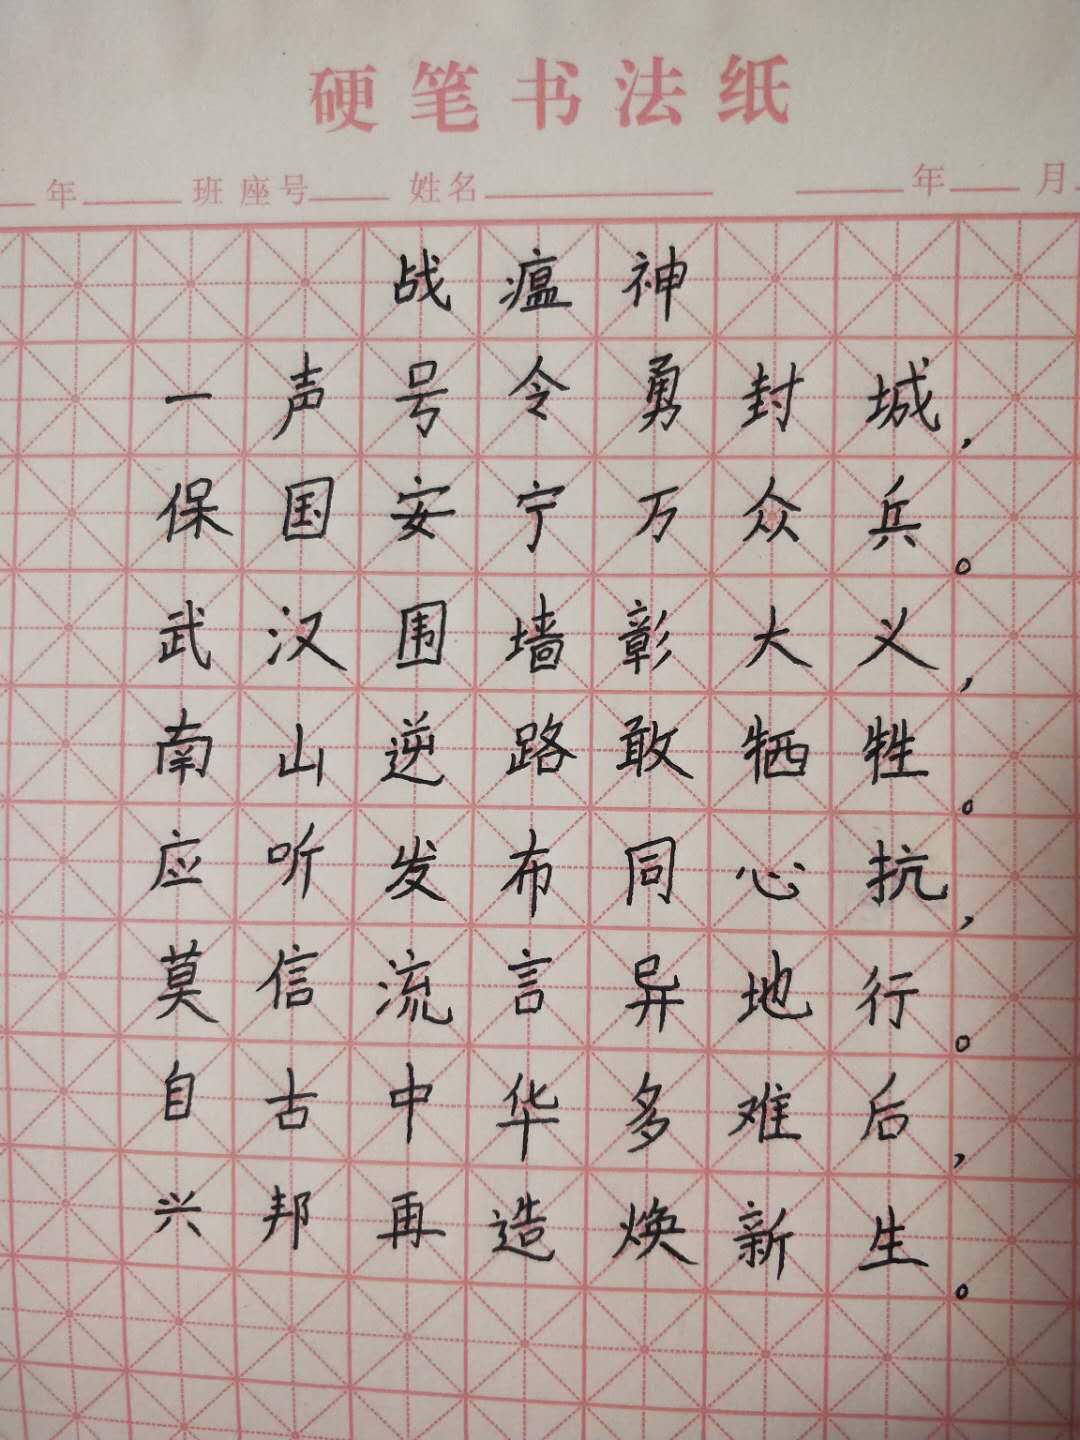 硬笔书法纸
年 班 座号 姓名 年 月
战瘟神
一声号令勇封城，
保国安宁万众兵。
武汉围墙彰大义，
南山逆路敢牺牲。
应听发布同心抗，
莫信流言异地行。
自古中华多难后，
兴邦再造焕新生。